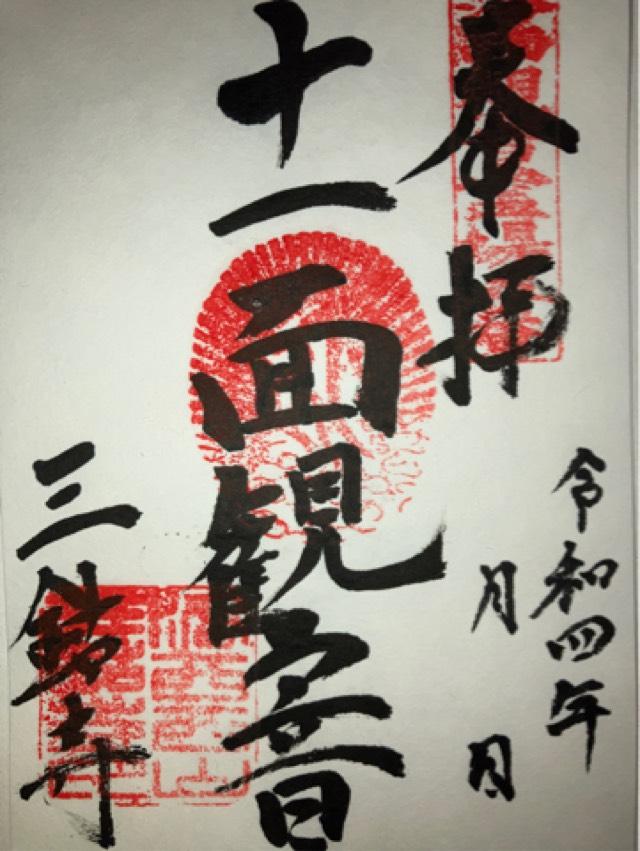 奉拝
令和四年
月 日
十一面観音
三鈴寺